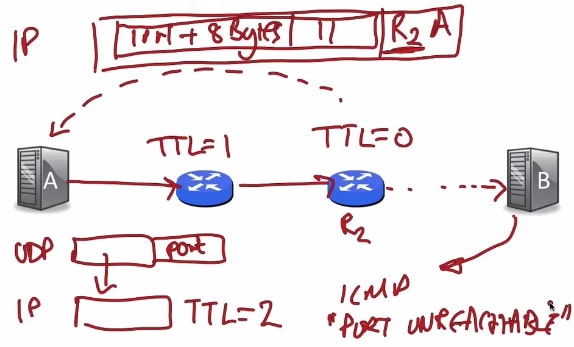 IP IPH + 8 Bytes 11 R2 A
TTL=1 TTL=0
A B
R2
UDP port
IP TTL=2
ICMP
"PORT UNREACHABLE"